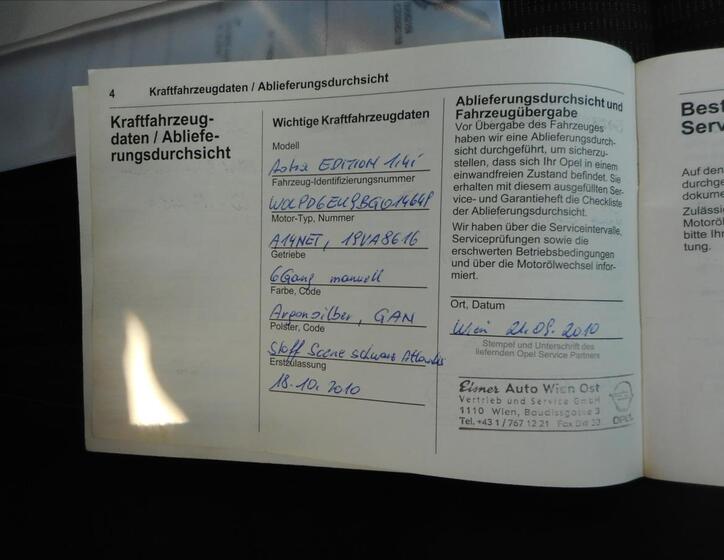 4 Kraftfahrzeugdaten / Ablieferungsdurchsicht
Kraftfahrzeug-
daten / Abliefe-
rungsdurchsicht
Wichtige Kraftfahrzeugdaten
Modell
Astra EDITION 1.4i
Fahrzeug-Identifizierungsnummer
Motor-Typ, Nummer
A14NET, 19VA8616
Getriebe
6Gang manuell
Farbe, Code
Argonsilber, GAN
Polster, Code
Stoff Scene schwarz Atlantis
Erstzulassung
18.10.2010
Ablieferungsdurchsicht und
Fahrzeugübergabe
Vor Übergabe des Fahrzeuges
haben wir eine Ablieferungsdurch-
sicht durchgeführt, um sicherzu-
stellen, dass sich Ihr Opel in einem
einwandfreien Zustand befindet. Sie
erhalten mit diesem ausgefüllten Ser-
vice- und Garantieheft die Checkliste
der Ablieferungsdurchsicht.
Wir haben über die Serviceintervalle,
Serviceprüfungen sowie die
erschwerten Betriebsbedingungen
und über die Motorölwechsel infor-
miert.
Ort, Datum
Wien 2010
Stempel und Unterschrift des
liefernden Opel Service Partners
Eisner Auto Wien Ost
Vertrieb und Service GmbH
1110 Wien, Baudissgasse 3
Tel. +43 1 / 767 12 21 Fax DW 33
OPEL
Best
Serv
Auf den
durchge
dokume
Zulässig
Motoröl
bitte Ihr
tung.